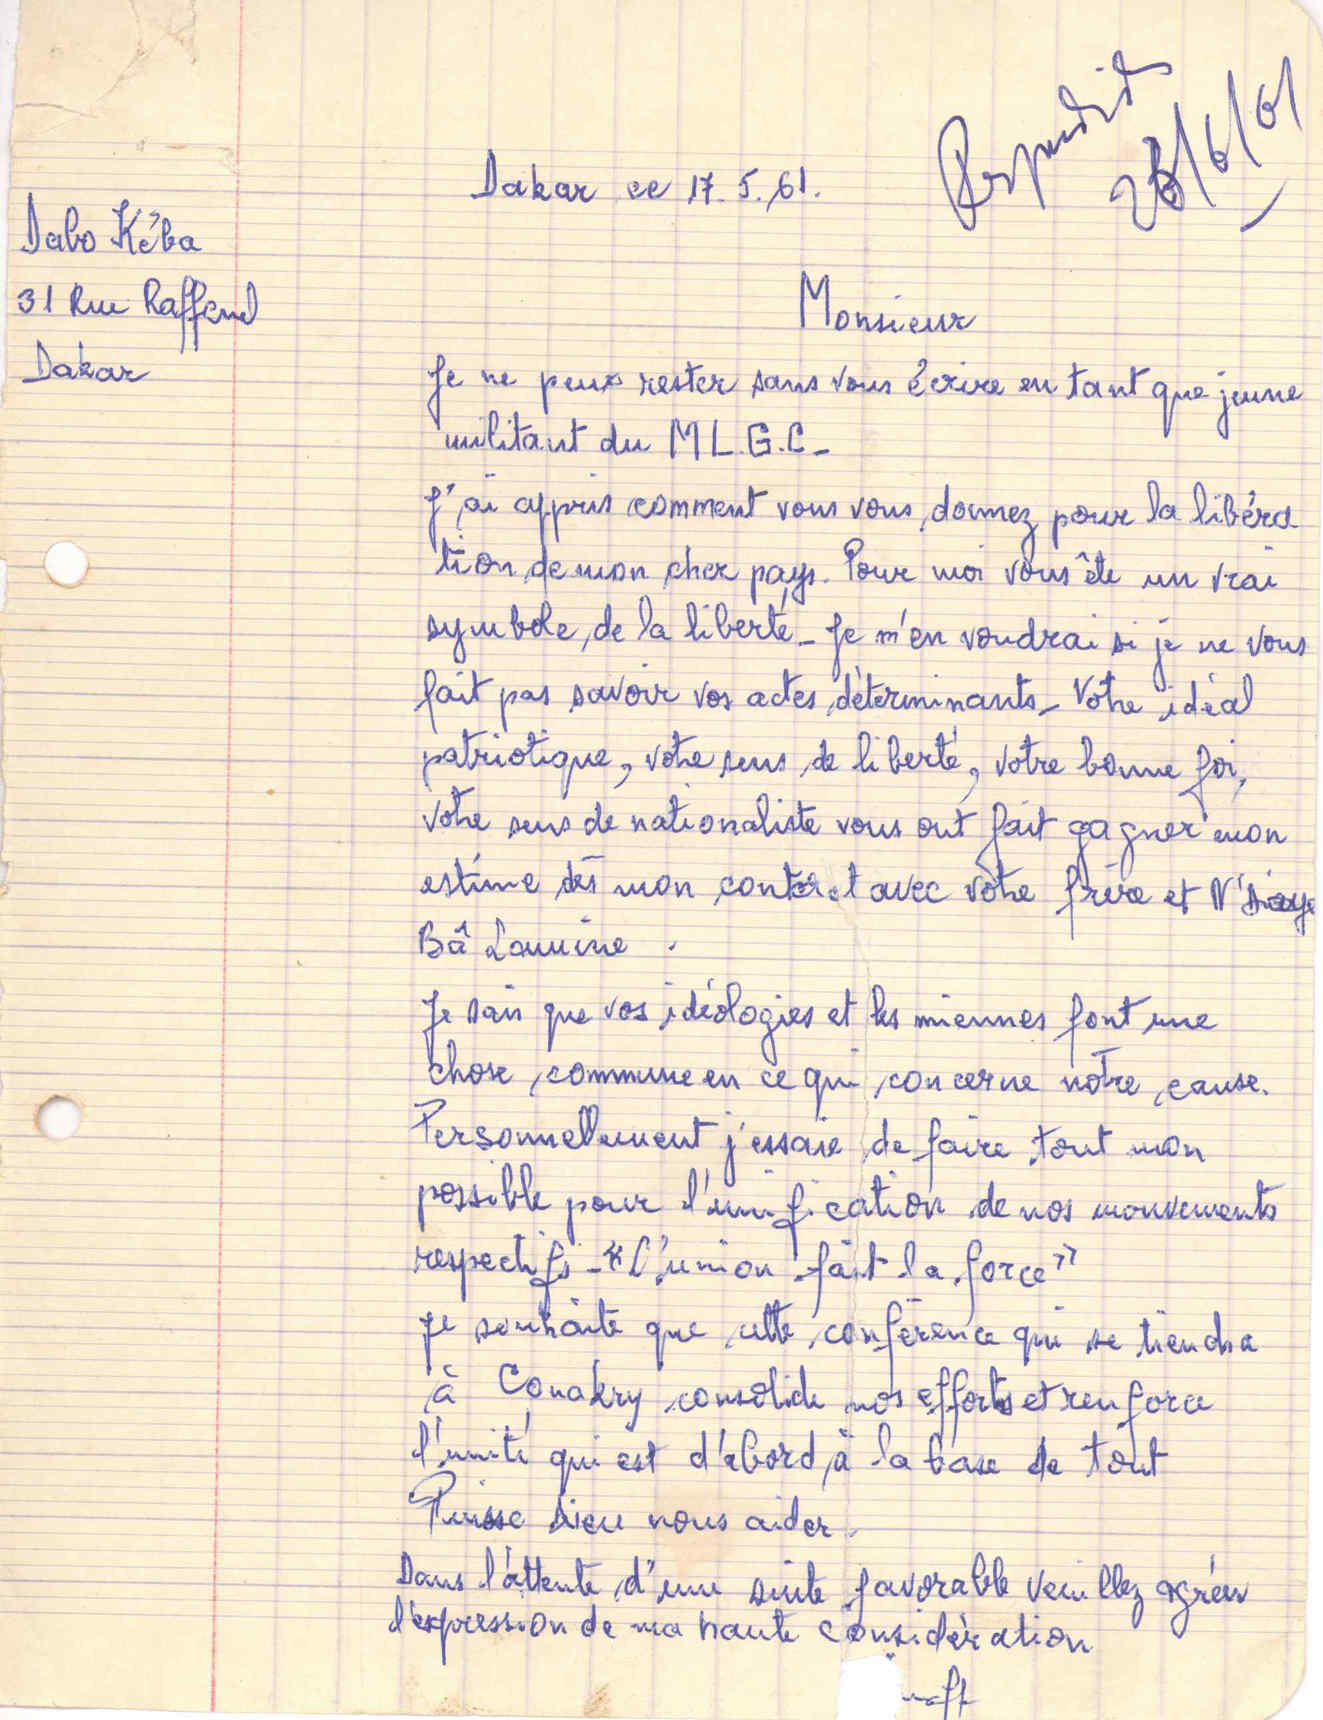 Respondido
26/6/61
Dakar ce 17.5.61.
Dabo Kéba
31 Rue Raffenel
Dakar
Monsieur
Je ne peux rester sans vous écrire en tant que jeune
militant du M L.G.C-
J'ai appris comment vous vous donnez pour la libéra
tion de mon cher pays. Pour moi vous ête un vrai
symbole de la liberté- Je m'en voudrai si je ne vous
fait pas savoir vos actes déterminants- Votre idéal
patriotique, votre sens de liberté, votre bonne foi,
votre sens de nationaliste vous ont fait gagner mon
estime dès mon contact avec votre frère et N'Diaye
Bâ Lamine.
Je sais que vos idéologies et les miennes font une
chose commune en ce qui concerne nôtre cause.
Personnellement j'essaie de faire tout mon
possible pour l'unification de nos mouvements
respectifs - "L'union fait la force"
Je souhaite que cette conférence qui se tiendra
à Conakry consolide nos efforts et renforce
l'unité qui est d'abord à la base de tout
Puisse dieu nous aider.
Dans l'attente d'une suite favorable veuillez agréer
l'expression de ma haute considération